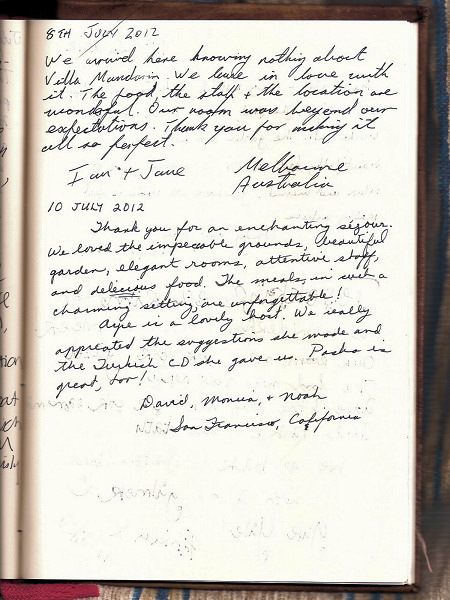 8TH JULY 2012
We arrived here knowing nothing about
Villa Mandarin. We leave in love with
it. The food, the staff + the location are
wonderful. Our room was beyond our
expectations. Thank you for making it
all so perfect.
Ian + Jane Melbourne
Australia
10 JULY 2012
Thank you for an enchanting séjour.
We loved the impeccable grounds, beautiful
garden, elegant rooms, attentive staff,
and delecious food. The meals, in such a
charming setting, are unforgettable!
Ayse is a lovely host. We really
appreciated the suggestions she made and
the Turkish CD she gave us. Pasha is
great, too!
David, Monica, + Noah
San Francisco, California